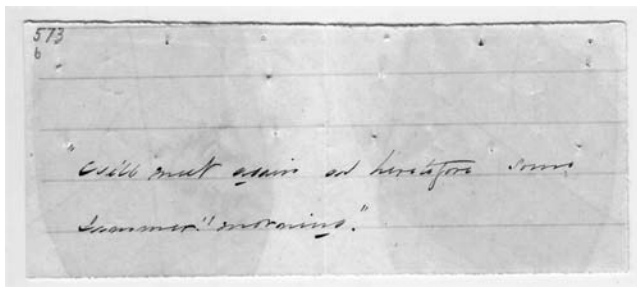 573
b
"We'll meet again as heretofore some
summer's morning."